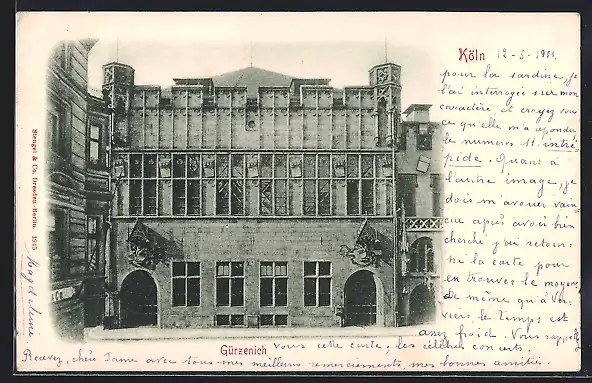 Köln 12-5-1901.
pour la sardine, je
l'ai interrogée sur mon
caractère, et croyez vous
ce qu'elle m'a répondu
le numéro 11. intré-
pide. Quant à
l'autre image, je
dois m'avouer vain-
cue après avoir bien
cherché j'ai retour-
né la carte pour
en trouver le moyen
de même qu'à Ver-
viers le temps est
assez froid. Vous rappelez
vous cette carte; les célèbres concerts.
Gürzenich
Recevez, chère Dame avec tous mes meilleurs remerciements, mes bonnes amitiés.
Magdeleine
Stengel & Co. Dresden-Berlin. 1945